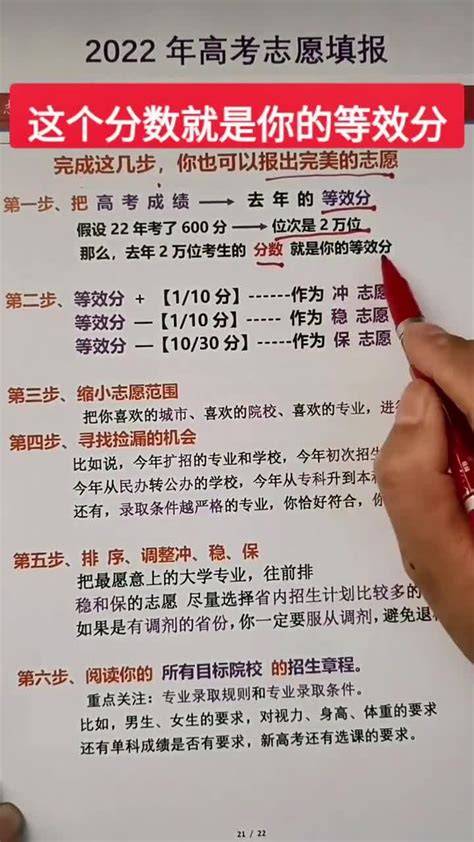 2022 年高考志愿填报
这个分数就是你的等效分
完成这几步，你也可以报出完美的志愿
第一步、把 高 考 成 绩 → 去 年 的 等效分
假设 22 年考了 600 分 → 位次是 2 万位
那么，去年 2 万位考生的 分数 就是你的等效分
第二步、等效分 + 【1/10 分】------作为 冲 志愿
等效分 —【1/10 分】------作为 稳 志愿
等效分 —【10/30 分】------作为 保 志愿
第三步、缩小志愿范围
把你喜欢的城市、喜欢的院校、喜欢的专业，进
第四步、寻找捡漏的机会
比如说，今年扩招的专业和学校，今年初次招生
今年从民办转公办的学校，今年从专科升到本科
还有，录取条件越严格的专业，你恰好符合，你
第五步、排 序、调整冲、稳、保
把最愿意上的大学专业，往前排
稳和保的志愿 尽量选择省内招生计划比较多的
如果是有调剂的省份，你一定要服从调剂，避免退
第六步、阅读你的 所有目标院校 的招生章程。
重点关注：专业录取规则和专业录取条件。
比如，男生、女生的要求，对视力、身高、体重的要求
还有单科成绩是否有要求，新高考还有选课的要求。
21 / 22